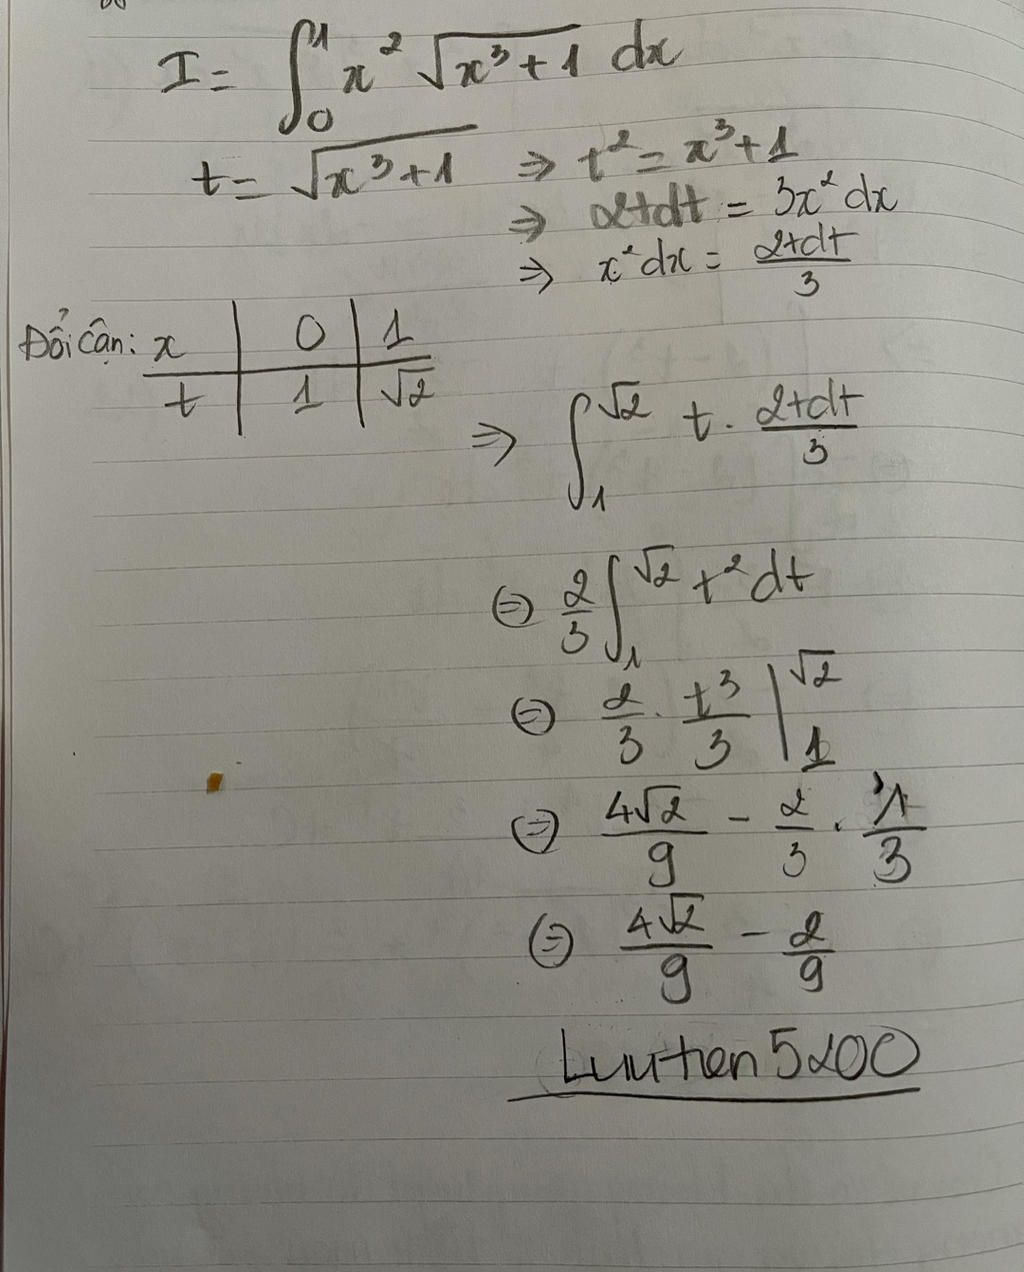 I = ∫₀¹ x² √(x³+1) dx
t = √(x³+1) ⇒ t² = x³+1
⇒ 2tdt = 3x² dx
⇒ x² dx = 2tdt/3
Đổi cận: x | 0 | 1
t | 1 | √2
⇒ ∫₁^√2 t . 2tdt/3
⇔ 2/3 ∫₁^√2 t² dt
⇔ 2/3 . t³/3 |₁^√2
⇔ 4√2/9 - 2/3 . 1/3
⇔ 4√2/9 - 2/9
Luutien5200